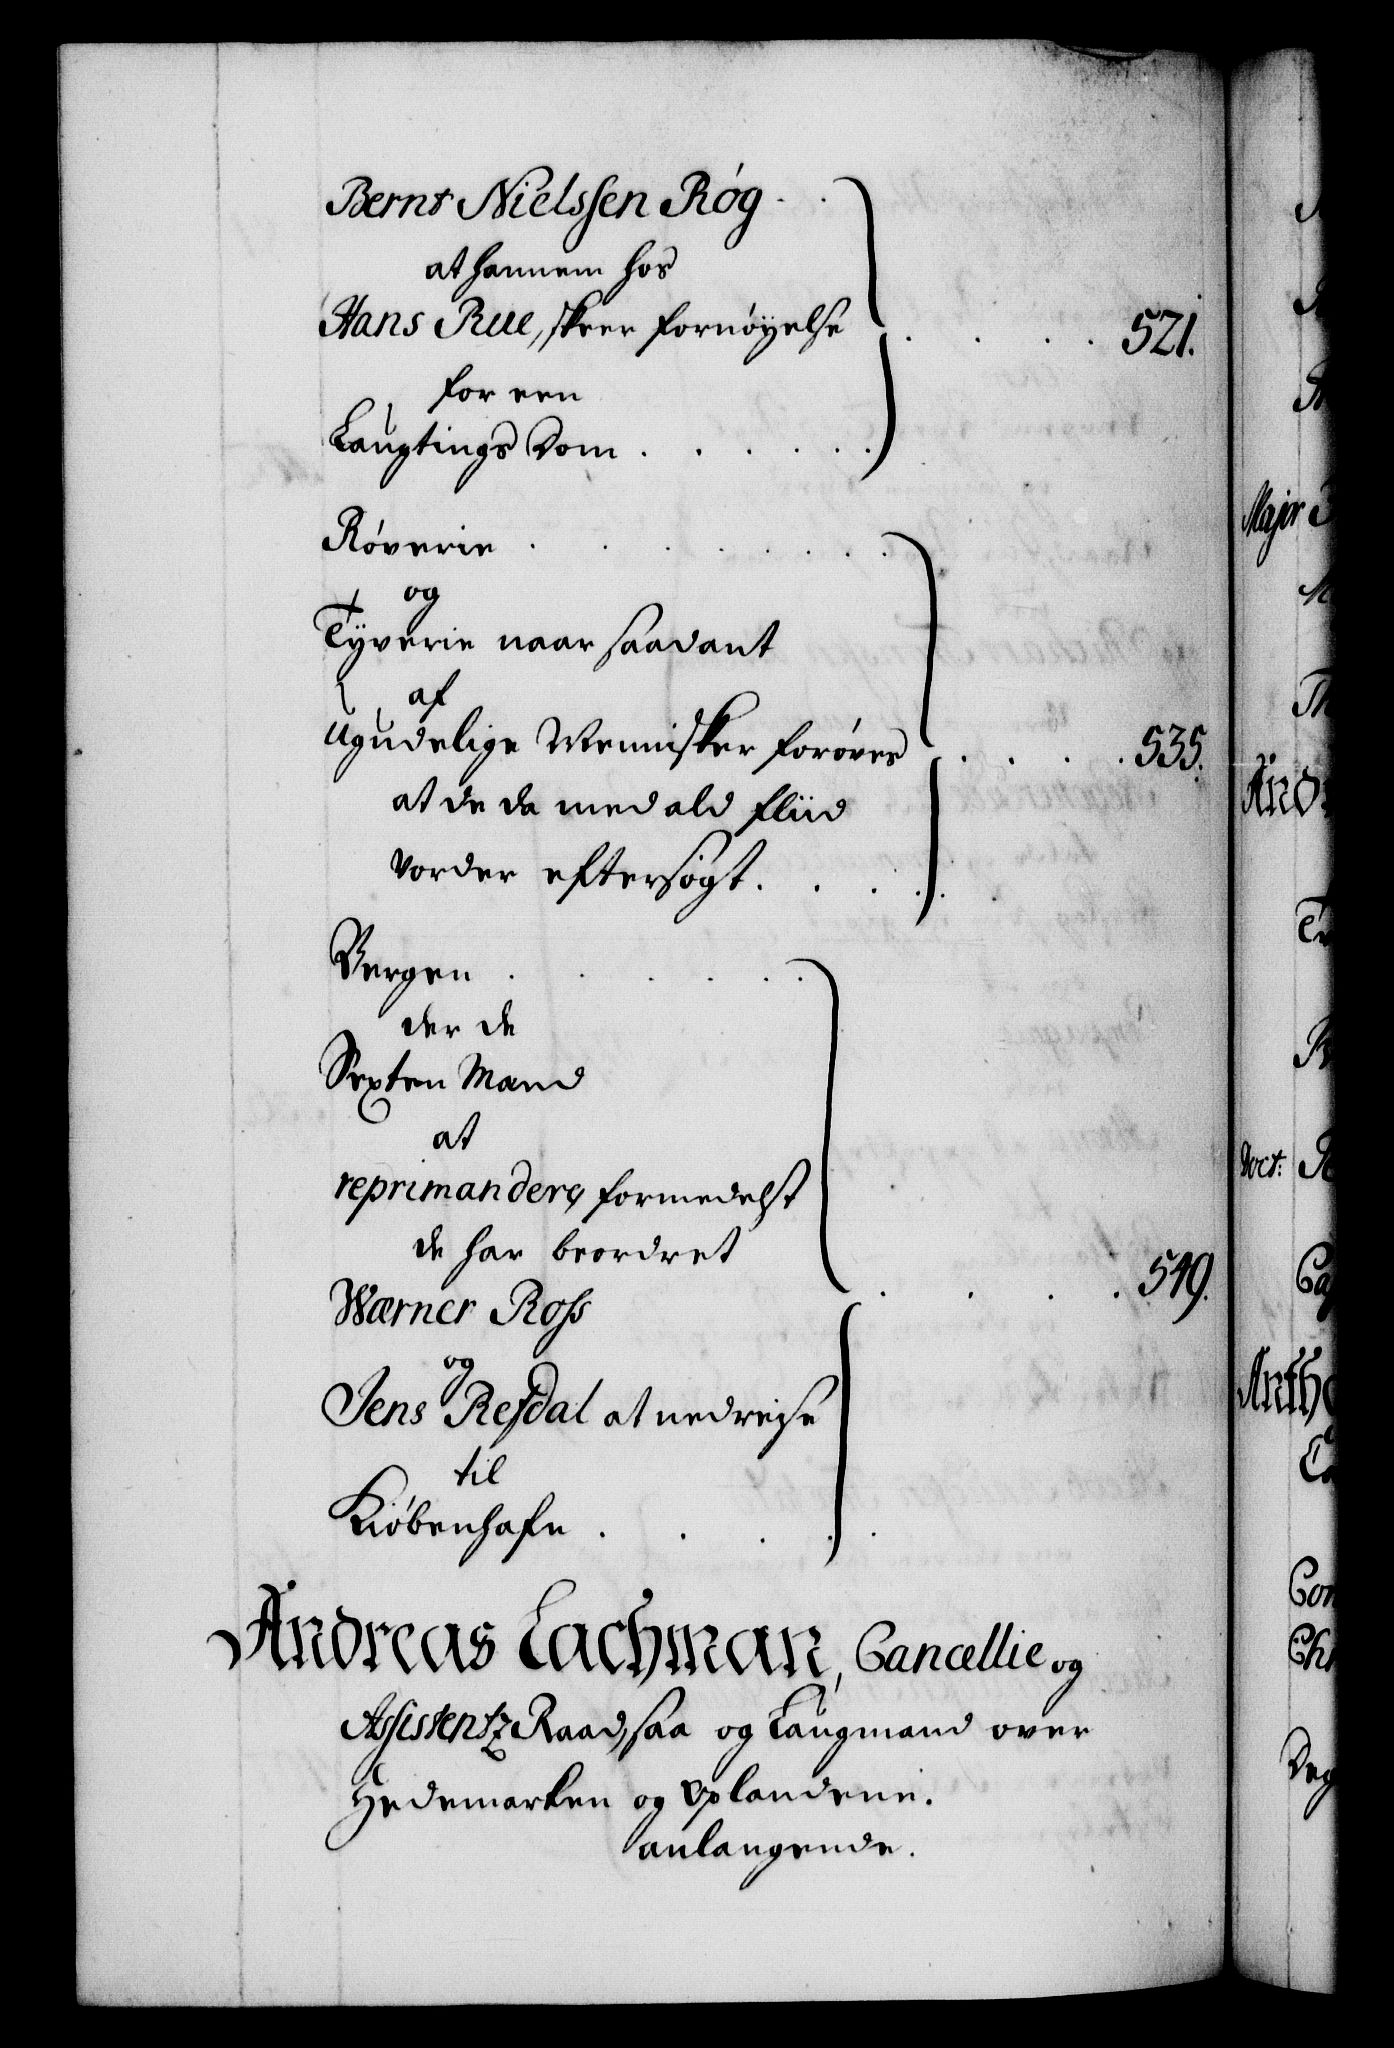 Bernt Nielssen Røg
at hannem hos
Hans Rue, skeer fornøyelse
521.
for een
Laugtings Dom
Røverie
og
Tyverie naar saadant
af
Ugudelige Mennisker forøves
535.
at de da med ald fliid
vorder eftersøgt.
Bergen
der de
Sexten Mænd
at
reprimandere, formedelst
de har beordret
549.
Wærner Ross
og
Jens Refdal at nedreise
til
Kiøbenhafn
Andreas Lachman, Cancellie og
Assistentz Raad, saa og Laugmand over
Hedemarken og Oplandene.
anlangende.
Major
And
Th
Doct:
Antho
Con
Chr